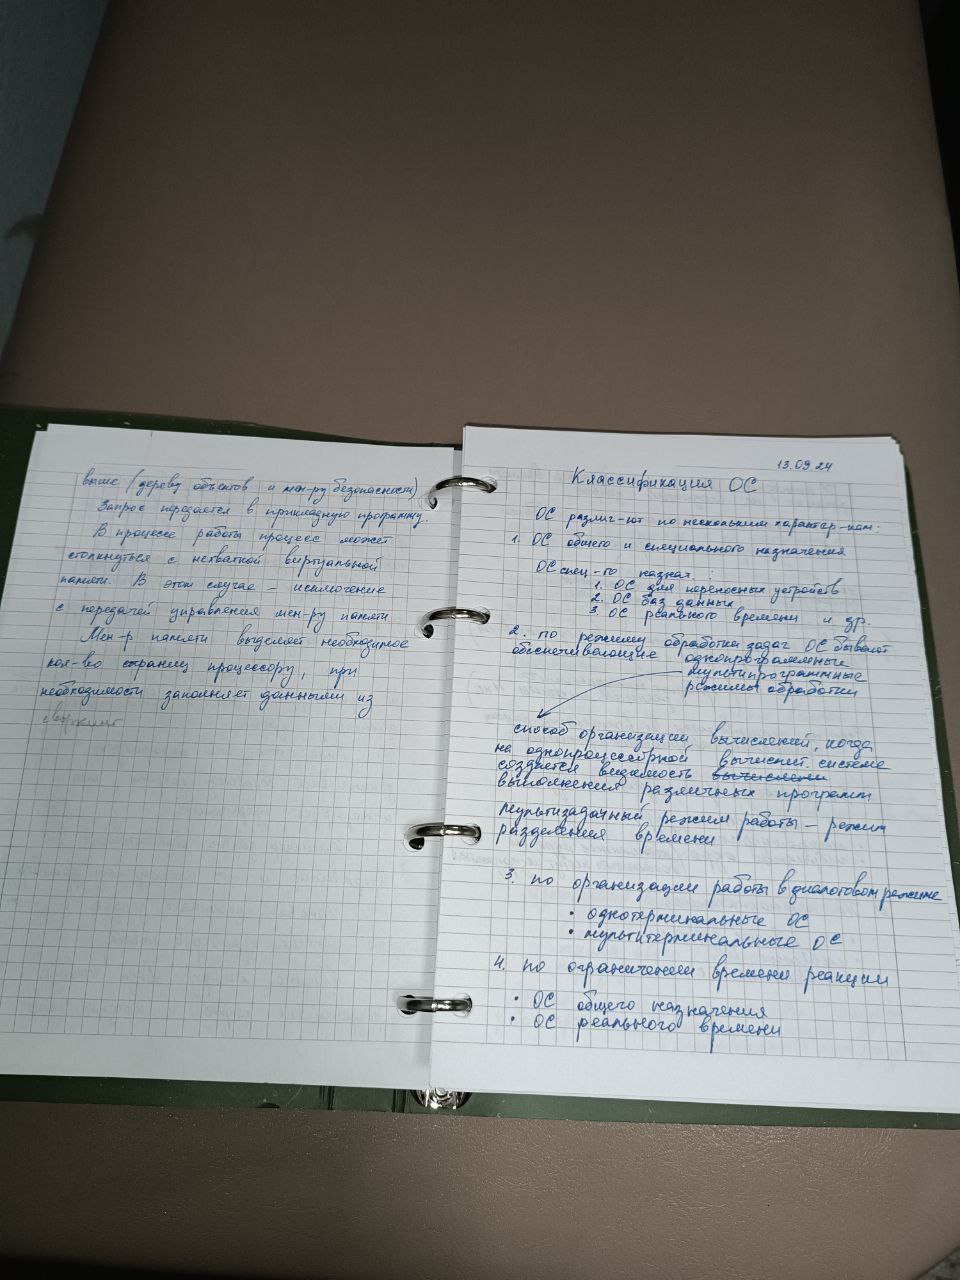 выше (дереву объектов и мен-ру безопасности)
Запрос передается в прикладную программу.
В процессе работы процесс может
столкнуться с нехваткой виртуальной
памяти. В этом случае – исключение
с передачей управления мен-ру памяти
Мен-р памяти выделяет необходимое
кол-во страниц процессору, при
необходимости заполняет данными из
13.09.24
Классификация ОС
ОС различ-ют по нескольким характер-кам:
1. ОС общего и специального назначения
ОС спец-го назнач. :
1. ОС для переносных устройств
2. ОС баз данных
3. ОС реального времени и др.
2. по режиму обработки задач ОС бывают
обеспечивающие однопрограммные
мультипрограммные
режимы обработки
способ организации вычислений, когда
на однопроцессорной вычислит. системе
создается видимость вычислени
выполнения различных программ
Мультизадачный режим работы – режим
разделения времени
3. по организации работы в диалоговом режиме
• однотерминальные ОС
• мультитерминальные ОС
4. по ограничениям времени реакции
• ОС общего назначения
• ОС реального времени